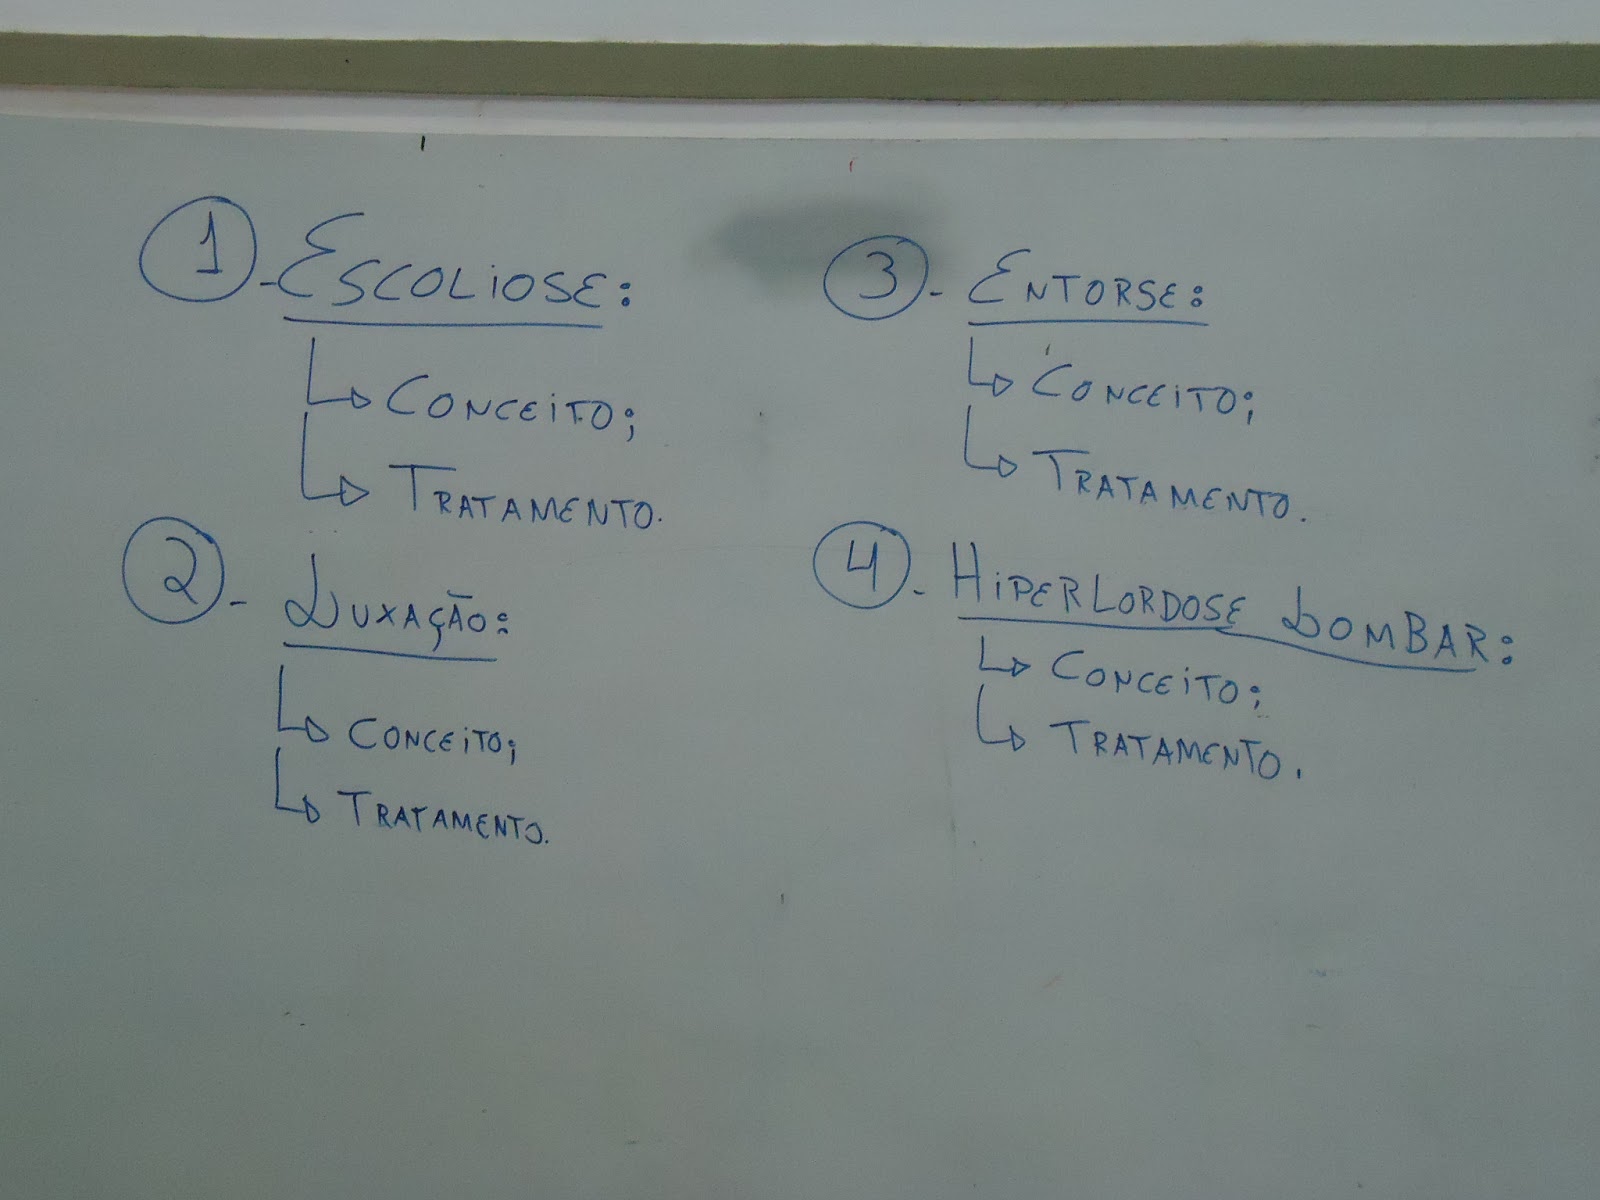 1 - Escoliose:
Conceito;
Tratamento.
2 - Luxação:
Conceito;
Tratamento.
3 - Entorse:
Conceito;
Tratamento.
4 - Hiperlordose Lombar:
Conceito;
Tratamento.